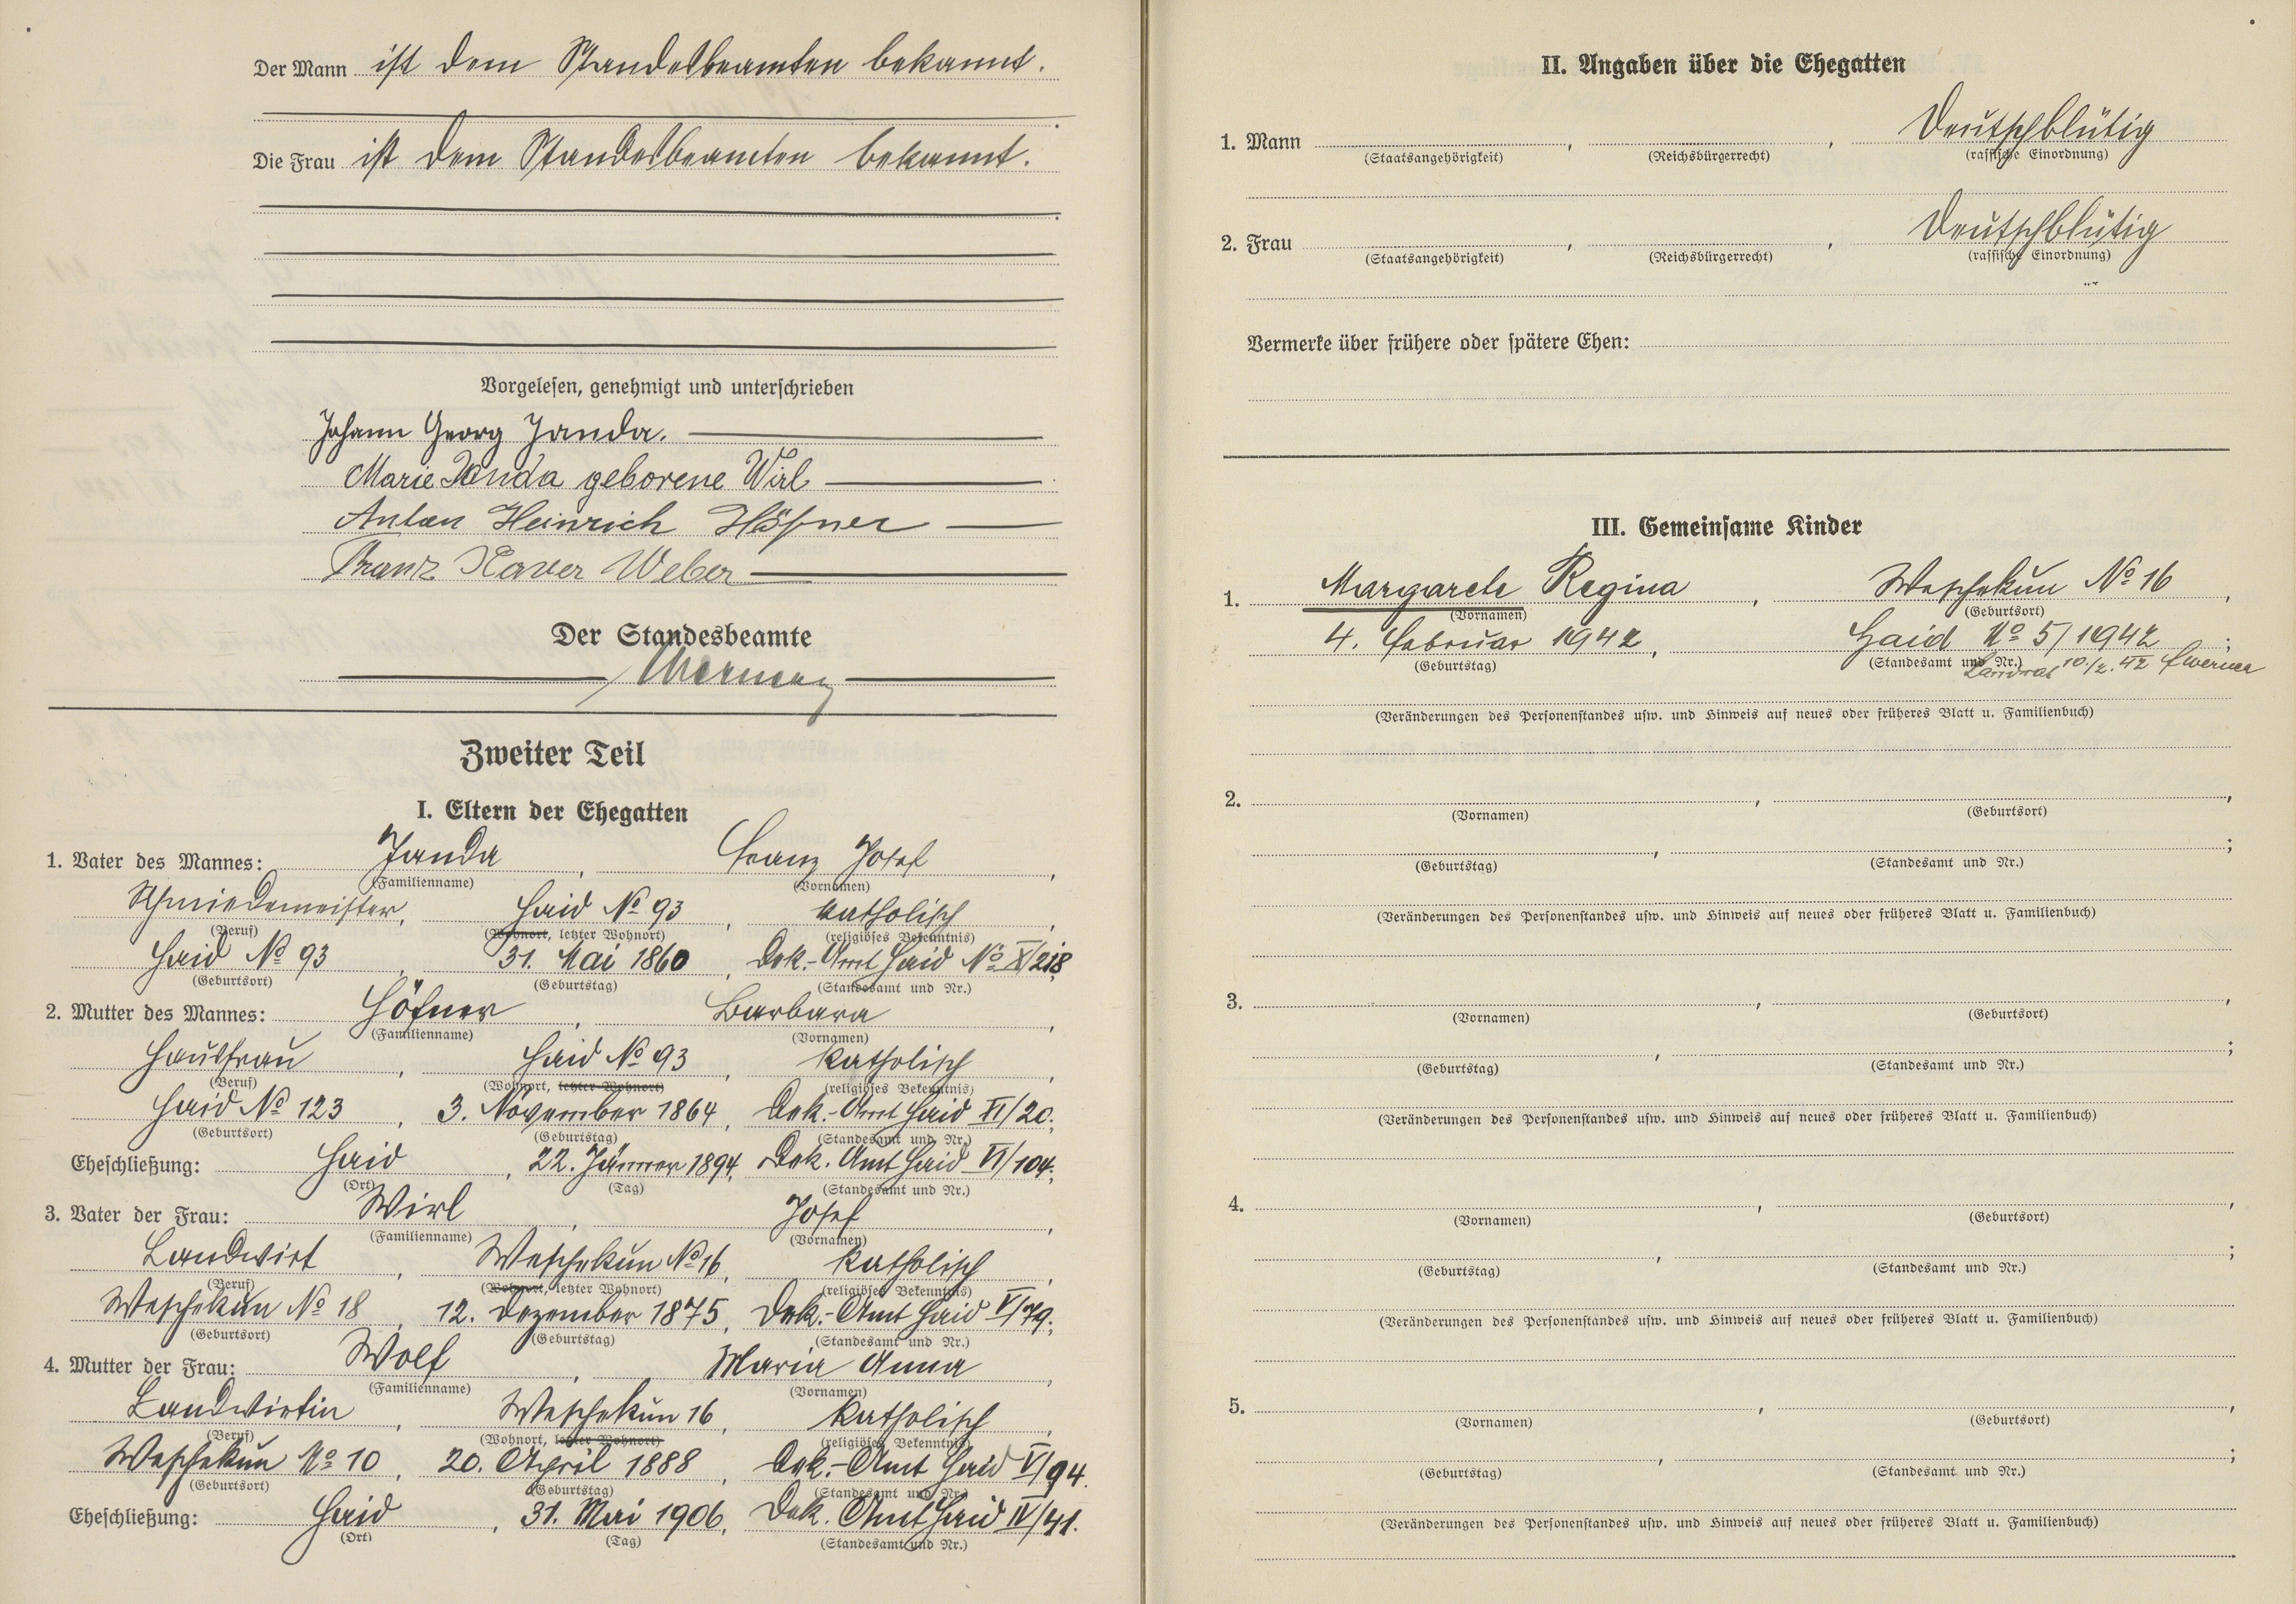 Der Mann ist dem Standesbeamten bekannt.
Die Frau ist dem Standesbeamten bekannt.
Vorgelesen, genehmigt und unterschrieben
Johann Georg Janda.
Marie Janda geborene Wirl
Anton Heinrich Höfner
Franz Xaver Weber
Der Standesbeamte
Zweiter Teil
I. Eltern der Ehegatten
1. Vater des Mannes: Janda, Franz Josef,
(Familienname) (Vornamen)
Schmiedemeister, Haid No 93, katholisch,
(Beruf) (Wohnort, letzter Wohnort) (religiöses Bekenntnis)
Haid No 93, 31. Mai 1860, Dek.-Amt Haid No X/218
(Geburtsort) (Geburtstag) (Standesamt und Nr.)
2. Mutter des Mannes: Höfner, Barbara,
(Familienname) (Vornamen)
Hausfrau, Haid No 93, katholisch,
(Beruf) (Wohnort, letzter Wohnort) (religiöses Bekenntnis)
Haid No 123, 3. November 1864, Dek.-Amt Haid XI/20;
(Geburtsort) (Geburtstag) (Standesamt und Nr.)
Eheschließung: Haid, 22. Jänner 1894, Dek. Amt Haid VI/104;
(Ort) (Tag) (Standesamt und Nr.)
3. Vater der Frau: Wirl, Josef,
(Familienname) (Vornamen)
Landwirt, Weschekun No 16, katholisch,
(Beruf) (Wohnort, letzter Wohnort) (religiöses Bekenntnis)
Weschekun No 18, 12. Dezember 1875, Dek.-Amt Haid V/79;
(Geburtsort) (Geburtstag) (Standesamt und Nr.)
4. Mutter der Frau: Wolf, Maria Anna,
(Familienname) (Vornamen)
Landwirtin, Weschekun 16, katholisch,
(Beruf) (Wohnort, letzter Wohnort) (religiöses Bekenntnis)
Weschekun No 10, 20. April 1888, Dek.-Amt Haid V/94.
(Geburtsort) (Geburtstag) (Standesamt und Nr.)
Eheschließung: Haid, 31. Mai 1906, Dek. Amt Haid IV/41.
(Ort) (Tag) (Standesamt und Nr.)
II. Angaben über die Ehegatten
1. Mann , , Deutschblütig
(Staatsangehörigkeit) (Reichsbürgerrecht) (rassische Einordnung)
2. Frau , , Deutschblütig
(Staatsangehörigkeit) (Reichsbürgerrecht) (rassische Einordnung)
Vermerke über frühere oder spätere Ehen:
III. Gemeinsame Kinder
1. Margarete Regina, Weschekun No 16,
(Vornamen) (Geburtsort)
4. Februar 1942, Haid No 5/1942;
(Geburtstag) (Standesamt und Nr.)
Landrat 10./2. 42
(Veränderungen des Personenstandes usw. und Hinweis auf neues oder früheres Blatt u. Familienbuch)
2. , ,
(Vornamen) (Geburtsort)
, ;
(Geburtstag) (Standesamt und Nr.)
(Veränderungen des Personenstandes usw. und Hinweis auf neues oder früheres Blatt u. Familienbuch)
3. , ,
(Vornamen) (Geburtsort)
, ;
(Geburtstag) (Standesamt und Nr.)
(Veränderungen des Personenstandes usw. und Hinweis auf neues oder früheres Blatt u. Familienbuch)
4. , ,
(Vornamen) (Geburtsort)
, ;
(Geburtstag) (Standesamt und Nr.)
(Veränderungen des Personenstandes usw. und Hinweis auf neues oder früheres Blatt u. Familienbuch)
5. , ,
(Vornamen) (Geburtsort)
, ;
(Geburtstag) (Standesamt und Nr.)
(Veränderungen des Personenstandes usw. und Hinweis auf neues oder früheres Blatt u. Familienbuch)